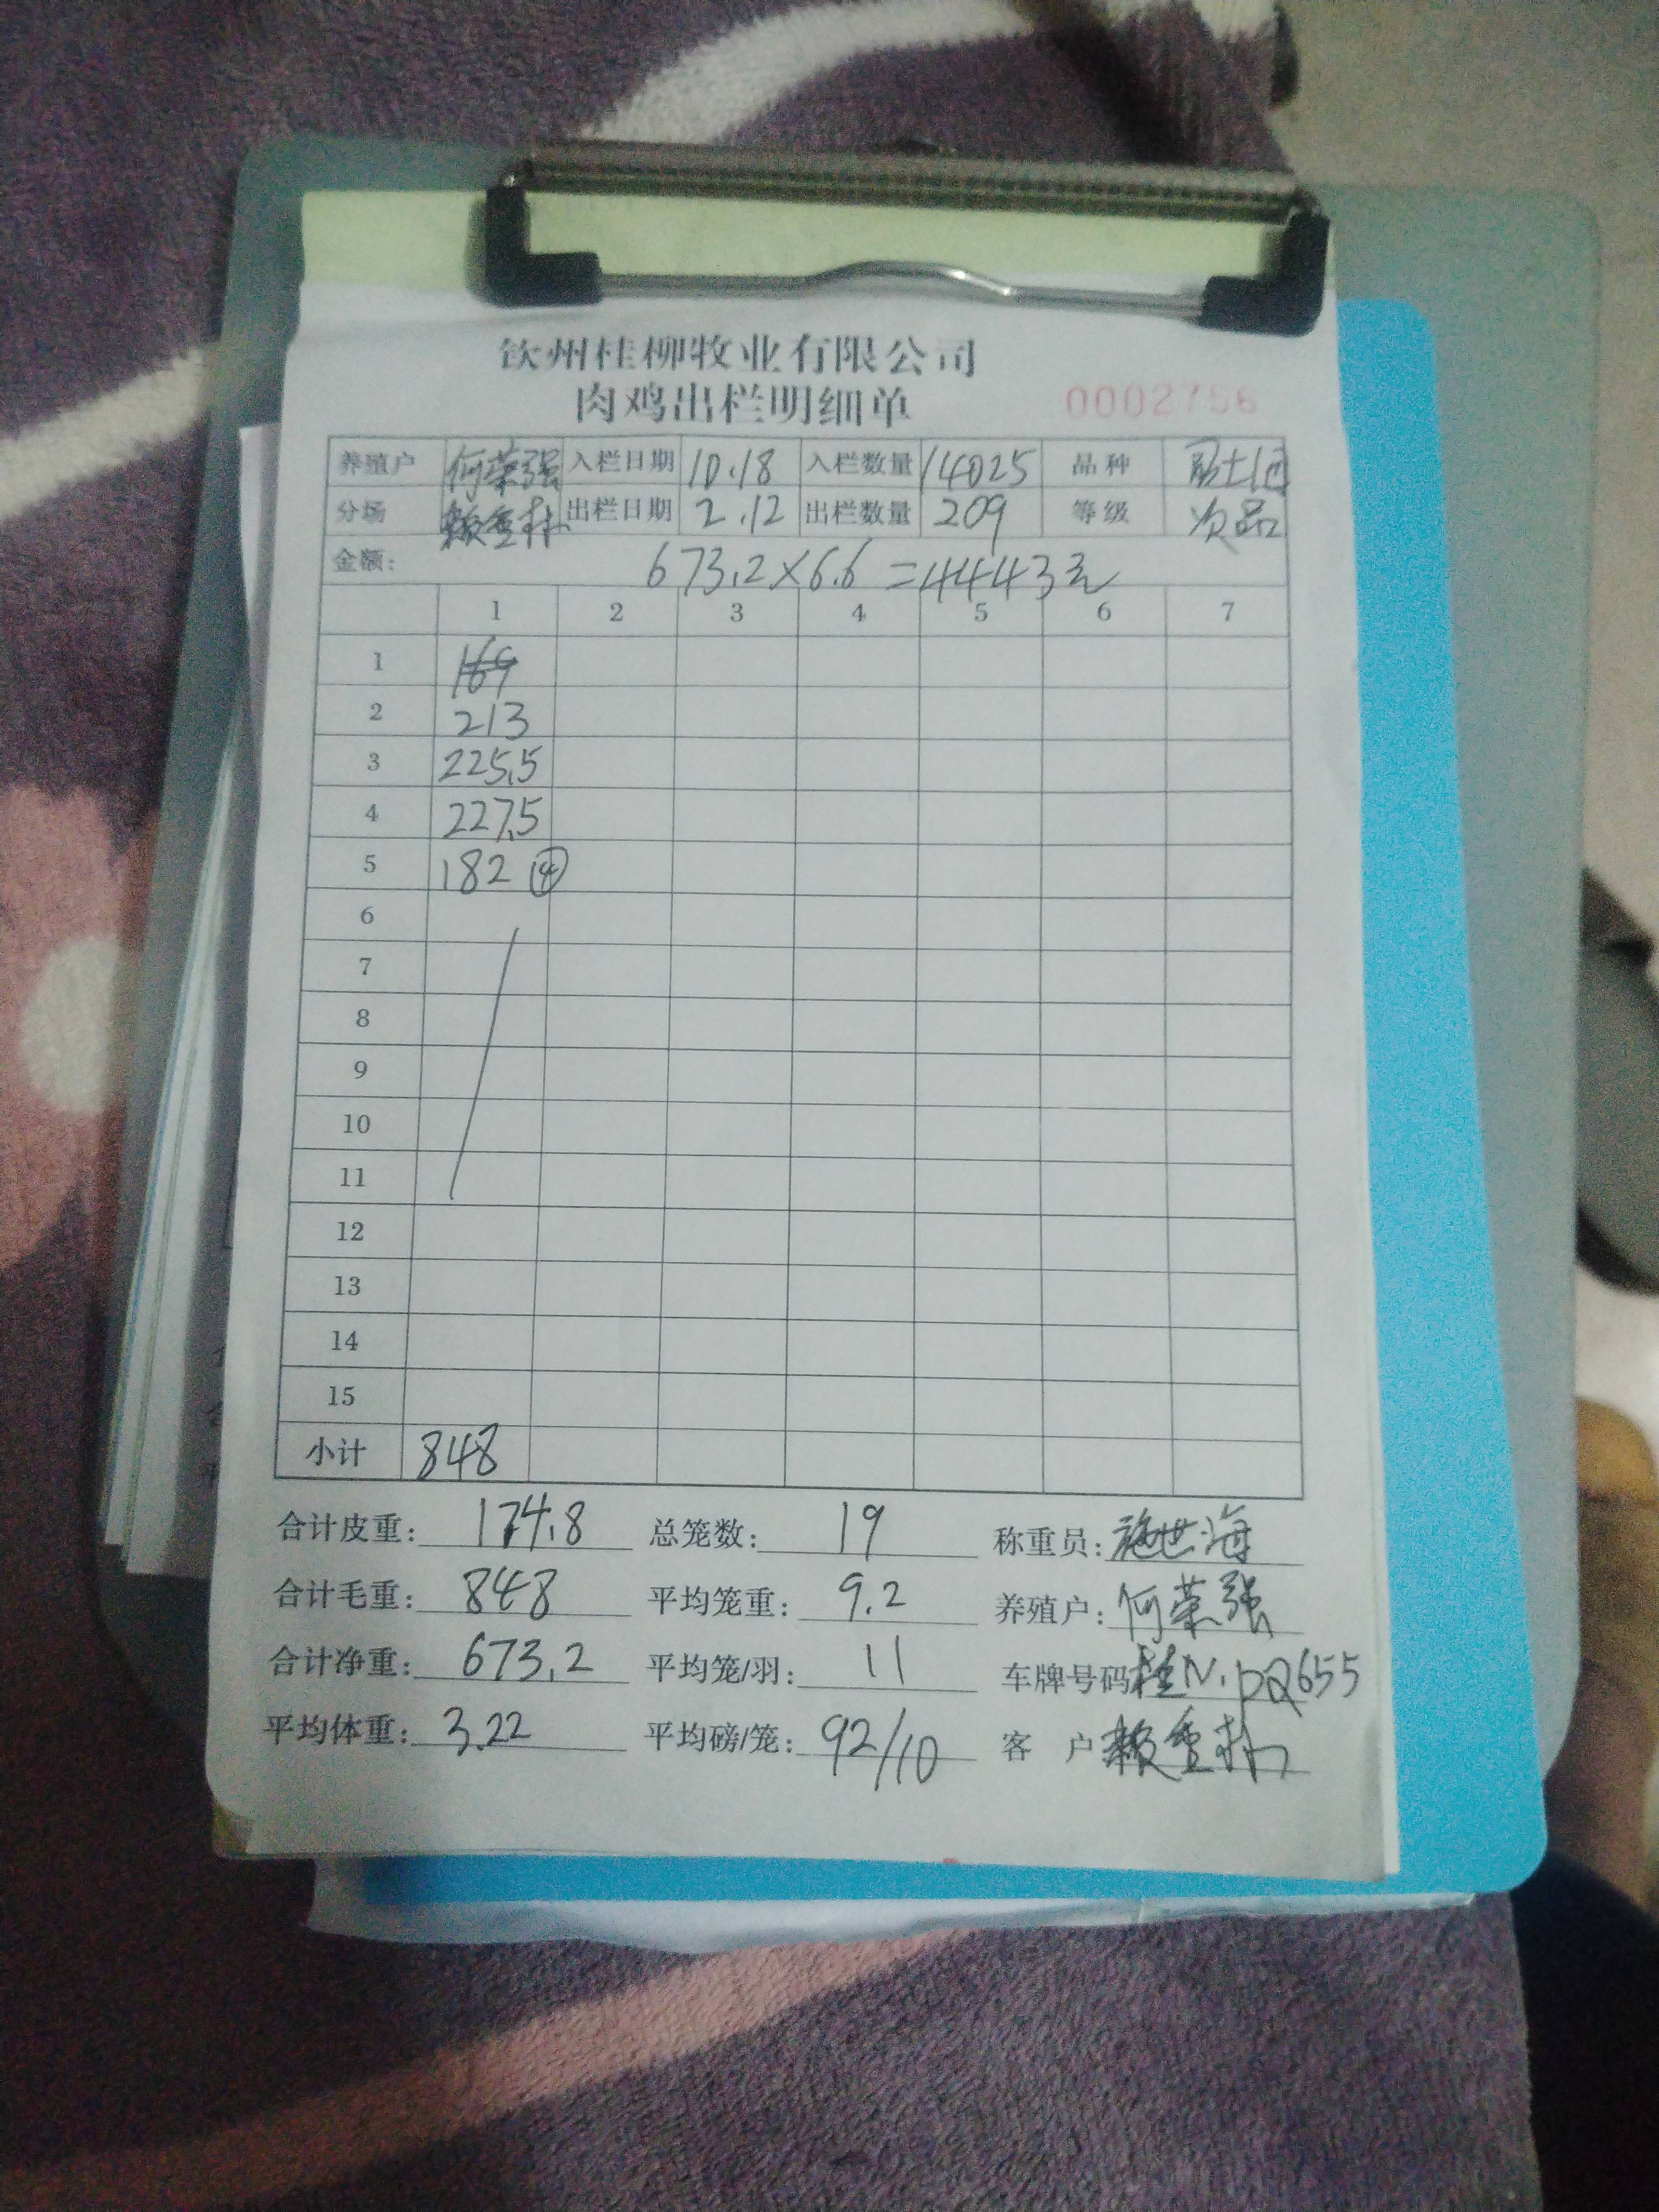 钦州桂柳牧业有限公司
肉鸡出栏明细单 0002756
养殖户 何荣强 入栏日期 10.18 入栏数量 14025 品种
分场 出栏日期 2.12 出栏数量 209 等级 次品
金额: 673.2×6.6=4443元
1 2 3 4 5 6 7
1 169
2 213
3 225.5
4 227.5
5 182 ④
6
7
8
9
10
11
12
13
14
15
小计 848
合计皮重: 174.8 总笼数: 19 称重员: 施世海
合计毛重: 848 平均笼重: 9.2 养殖户: 何荣强
合计净重: 673.2 平均笼/羽: 11 车牌号码 桂N.DQ655
平均体重: 3.22 平均磅/笼: 92/10 客 户